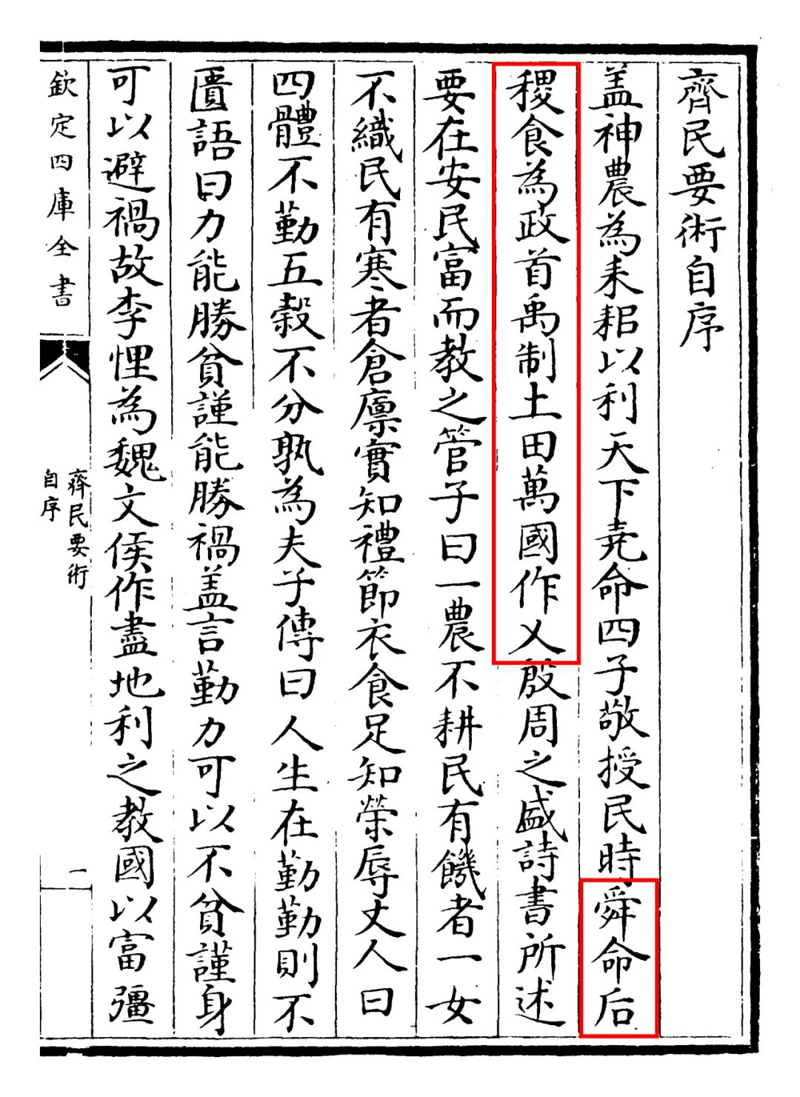 齊民要術自序
盖神農為耒耜以利天下堯命四子敬授民時舜命后
稷食為政首禹制土田萬國作乂殷周之盛詩書所述
要在安民富而教之管子曰一農不耕民有饑者一女
不織民有寒者倉廪實知禮節衣食足知榮辱丈人曰
四體不勤五榖不分孰為夫子傳曰人生在勤勤則不
匱語曰力能勝貧謹能勝禍盖言勤力可以不貧謹身
可以避禍故李悝為魏文侯作盡地利之教國以富彊
欽定四庫全書
齊民要術
自序
一